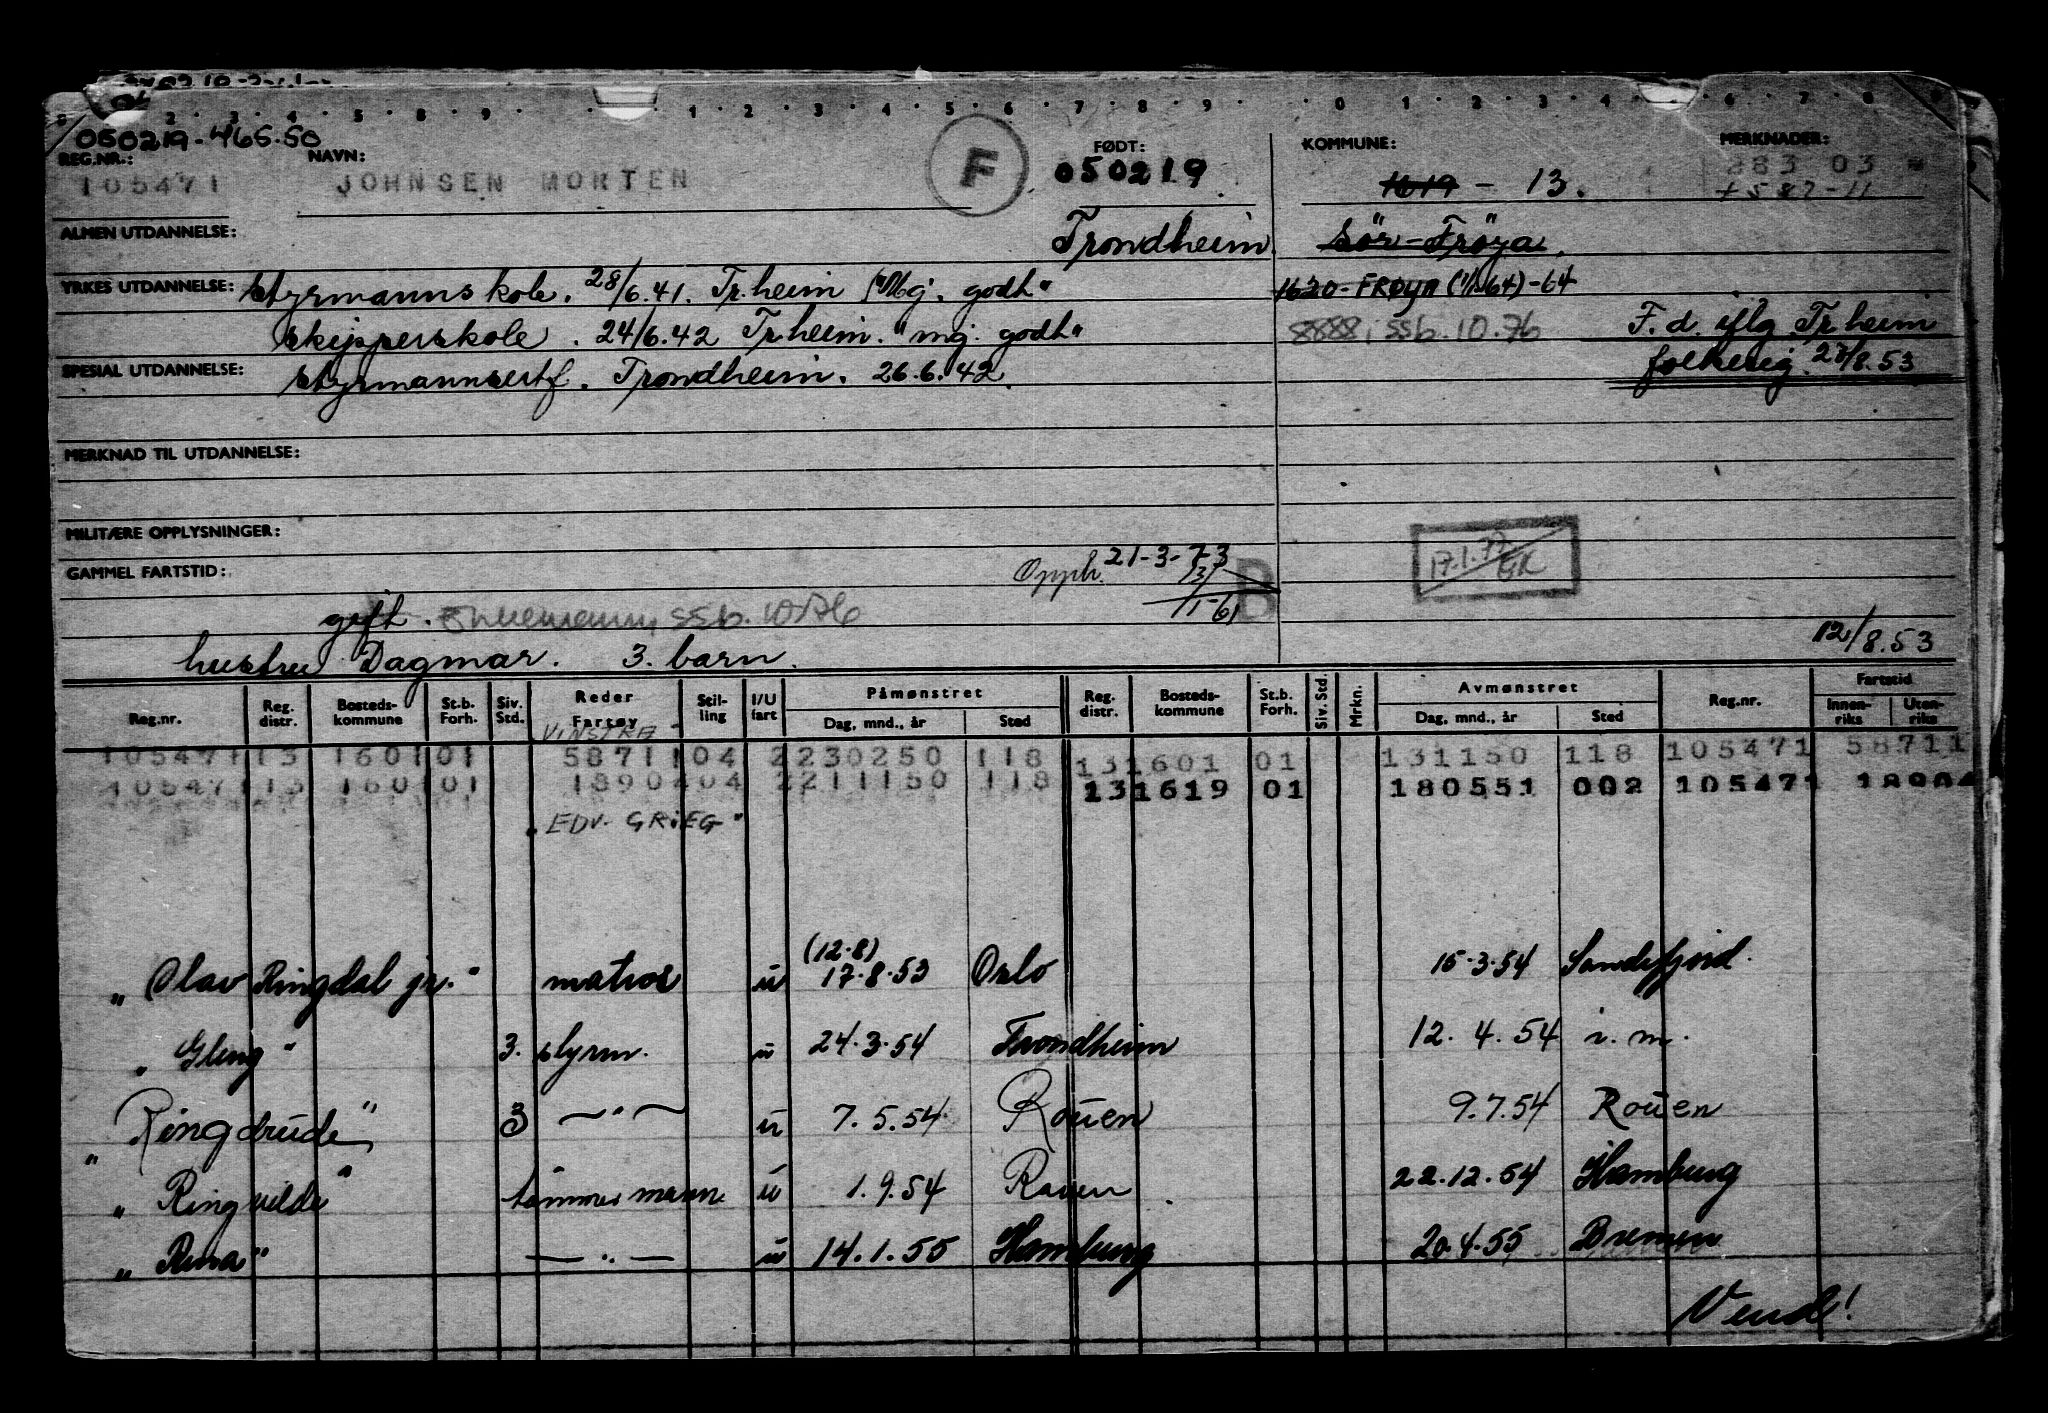 050219-465.50
REG.NR.: NAVN: F FØDT: KOMMUNE: MERKNADER:
105471 JOHNSEN MORTEN 050219 1619 - 13. 383 03
+587-11
ALMEN UTDANNELSE: Trondheim Sör-Fröya.
YRKES UTDANNELSE: styrmannskole. 28/6.41. Tr.heim "Mg. godt" 1620-FRØYA (1/1-64)-64
skipperskole. 24/6.42 Tr.heim. "mg. godt" 8888, ssb.10.76 F.d. iflg Tr.heim
SPESIAL UTDANNELSE: styrmannsertf. Trondheim. 26.6.42. folkereg. 28/8.53
MERKNAD TIL UTDANNELSE:
MILITÆRE OPPLYSNINGER:
GAMMEL FARTSTID: Opph. 21-3-73 B 17.1.77
13/1-61
gift. Enkemann, ssb. 10.76
hustru Dagmar. 3. barn. 12/8.53
Reg.nr. Reg. distr. Bosteds-kommune St.b. Forh. Siv. Std. Reder Fartøy Stil-ling I/U fart Påmønstret Dag, mnd., år Sted Reg. distr. Bosteds-kommune St.b. Forh. Siv. Std. Mrkn. Avmønstret Dag, mnd., år Sted Reg.nr. Fartstid Innen-riks Uten-riks
VINSTRA
105471 13 1601 01 5871 104 2 230250 118 13 1601 01 131150 118 105471 58711
105471 13 1601 01 1890 404 2 211150 118 13 1619 01 180551 002 105471 18904
"EDV. GRIEG"
(12.8)
"Olav Ringdal jr." matros u 17.8.53 Oslo 15.3.54 Sandefjord.
"Gleng" 3. styrm. u 24.3.54 Trondheim 12.4.54 i.m.
"Ringdrude" 3 —"— u 7.5.54 Rouen 9.7.54 Rouen
"Ringvilde" tømmermann u 1.9.54 Rouen 22.12.54 Hamburg
"Rina" —"— u 14.1.55 Hamburg 20.4.55 Bremen
Vend!